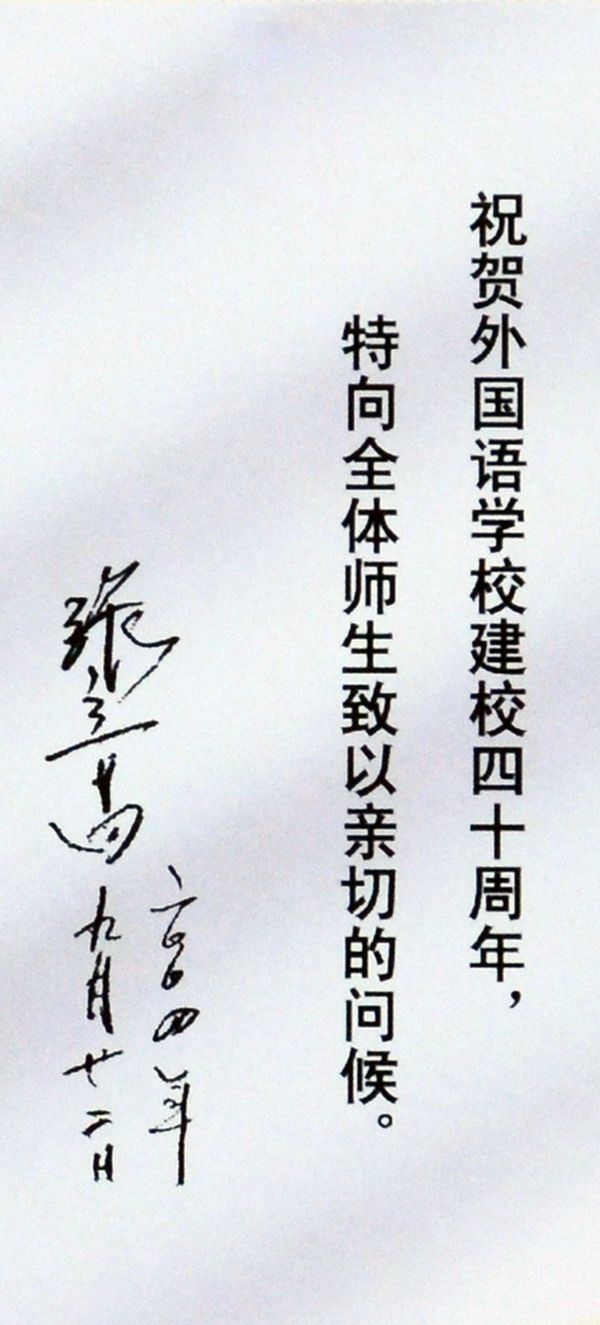 祝贺外国语学校建校四十周年，
特向全体师生致以亲切的问候。
二〇〇四年
九月廿二日